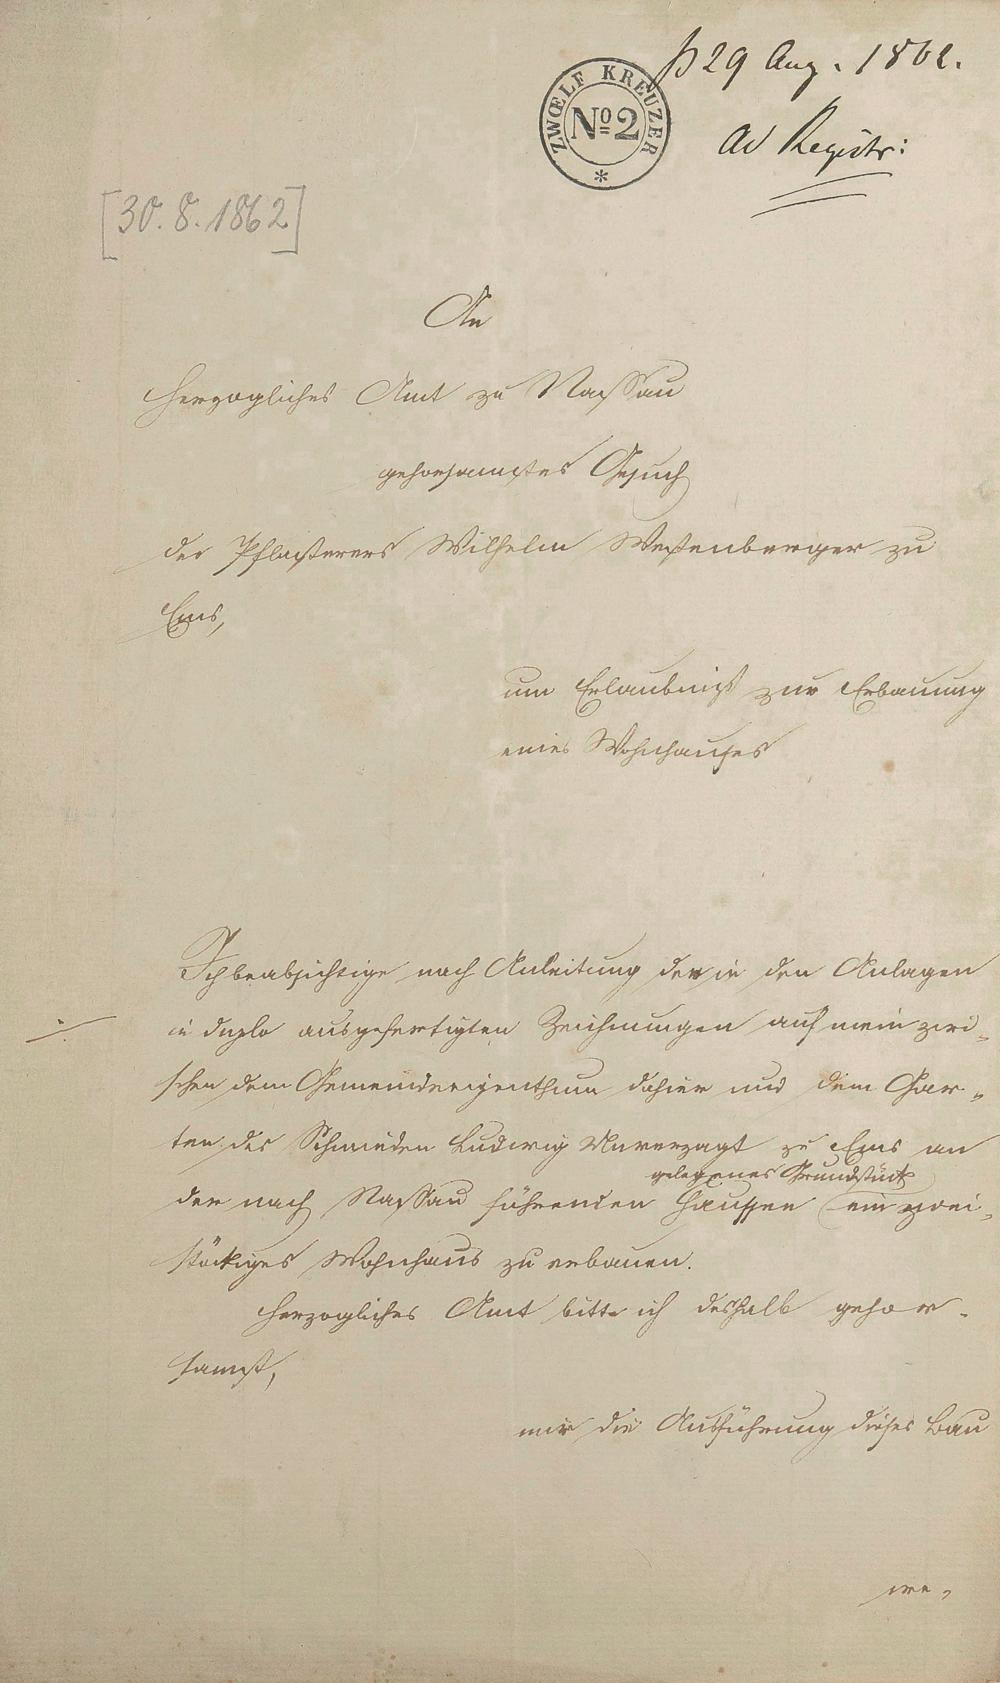 29 Aug. 1862.
ZWŒLF KREUZER
No 2
ad Registr:
[30.8.1862]
An
Herzogliches Amt zu Nassau
gehorsamstes Gesuch
des Pflasterers Wilhelm Westenberger zu
Ems,
um Erlaubniß zur Erbauung
eines Wohnhauses
Ich beabsichtige nach Anleitung der in den Anlagen
in duplo ausgefertigten Zeichnungen auf mein zwi-
schen dem Gemeindeeigenthum dahier und dem Gar-
ten des Schmieden Ludwig Unverzagt zu Ems an
gelegenes Grundstück
der nach Nassau führenden ein zwei-
stöckiges Wohnhaus zu erbauen.
Herzogliches Amt bitte ich deshalb gehor-
samst,
mir die Ausführung dieses Bau